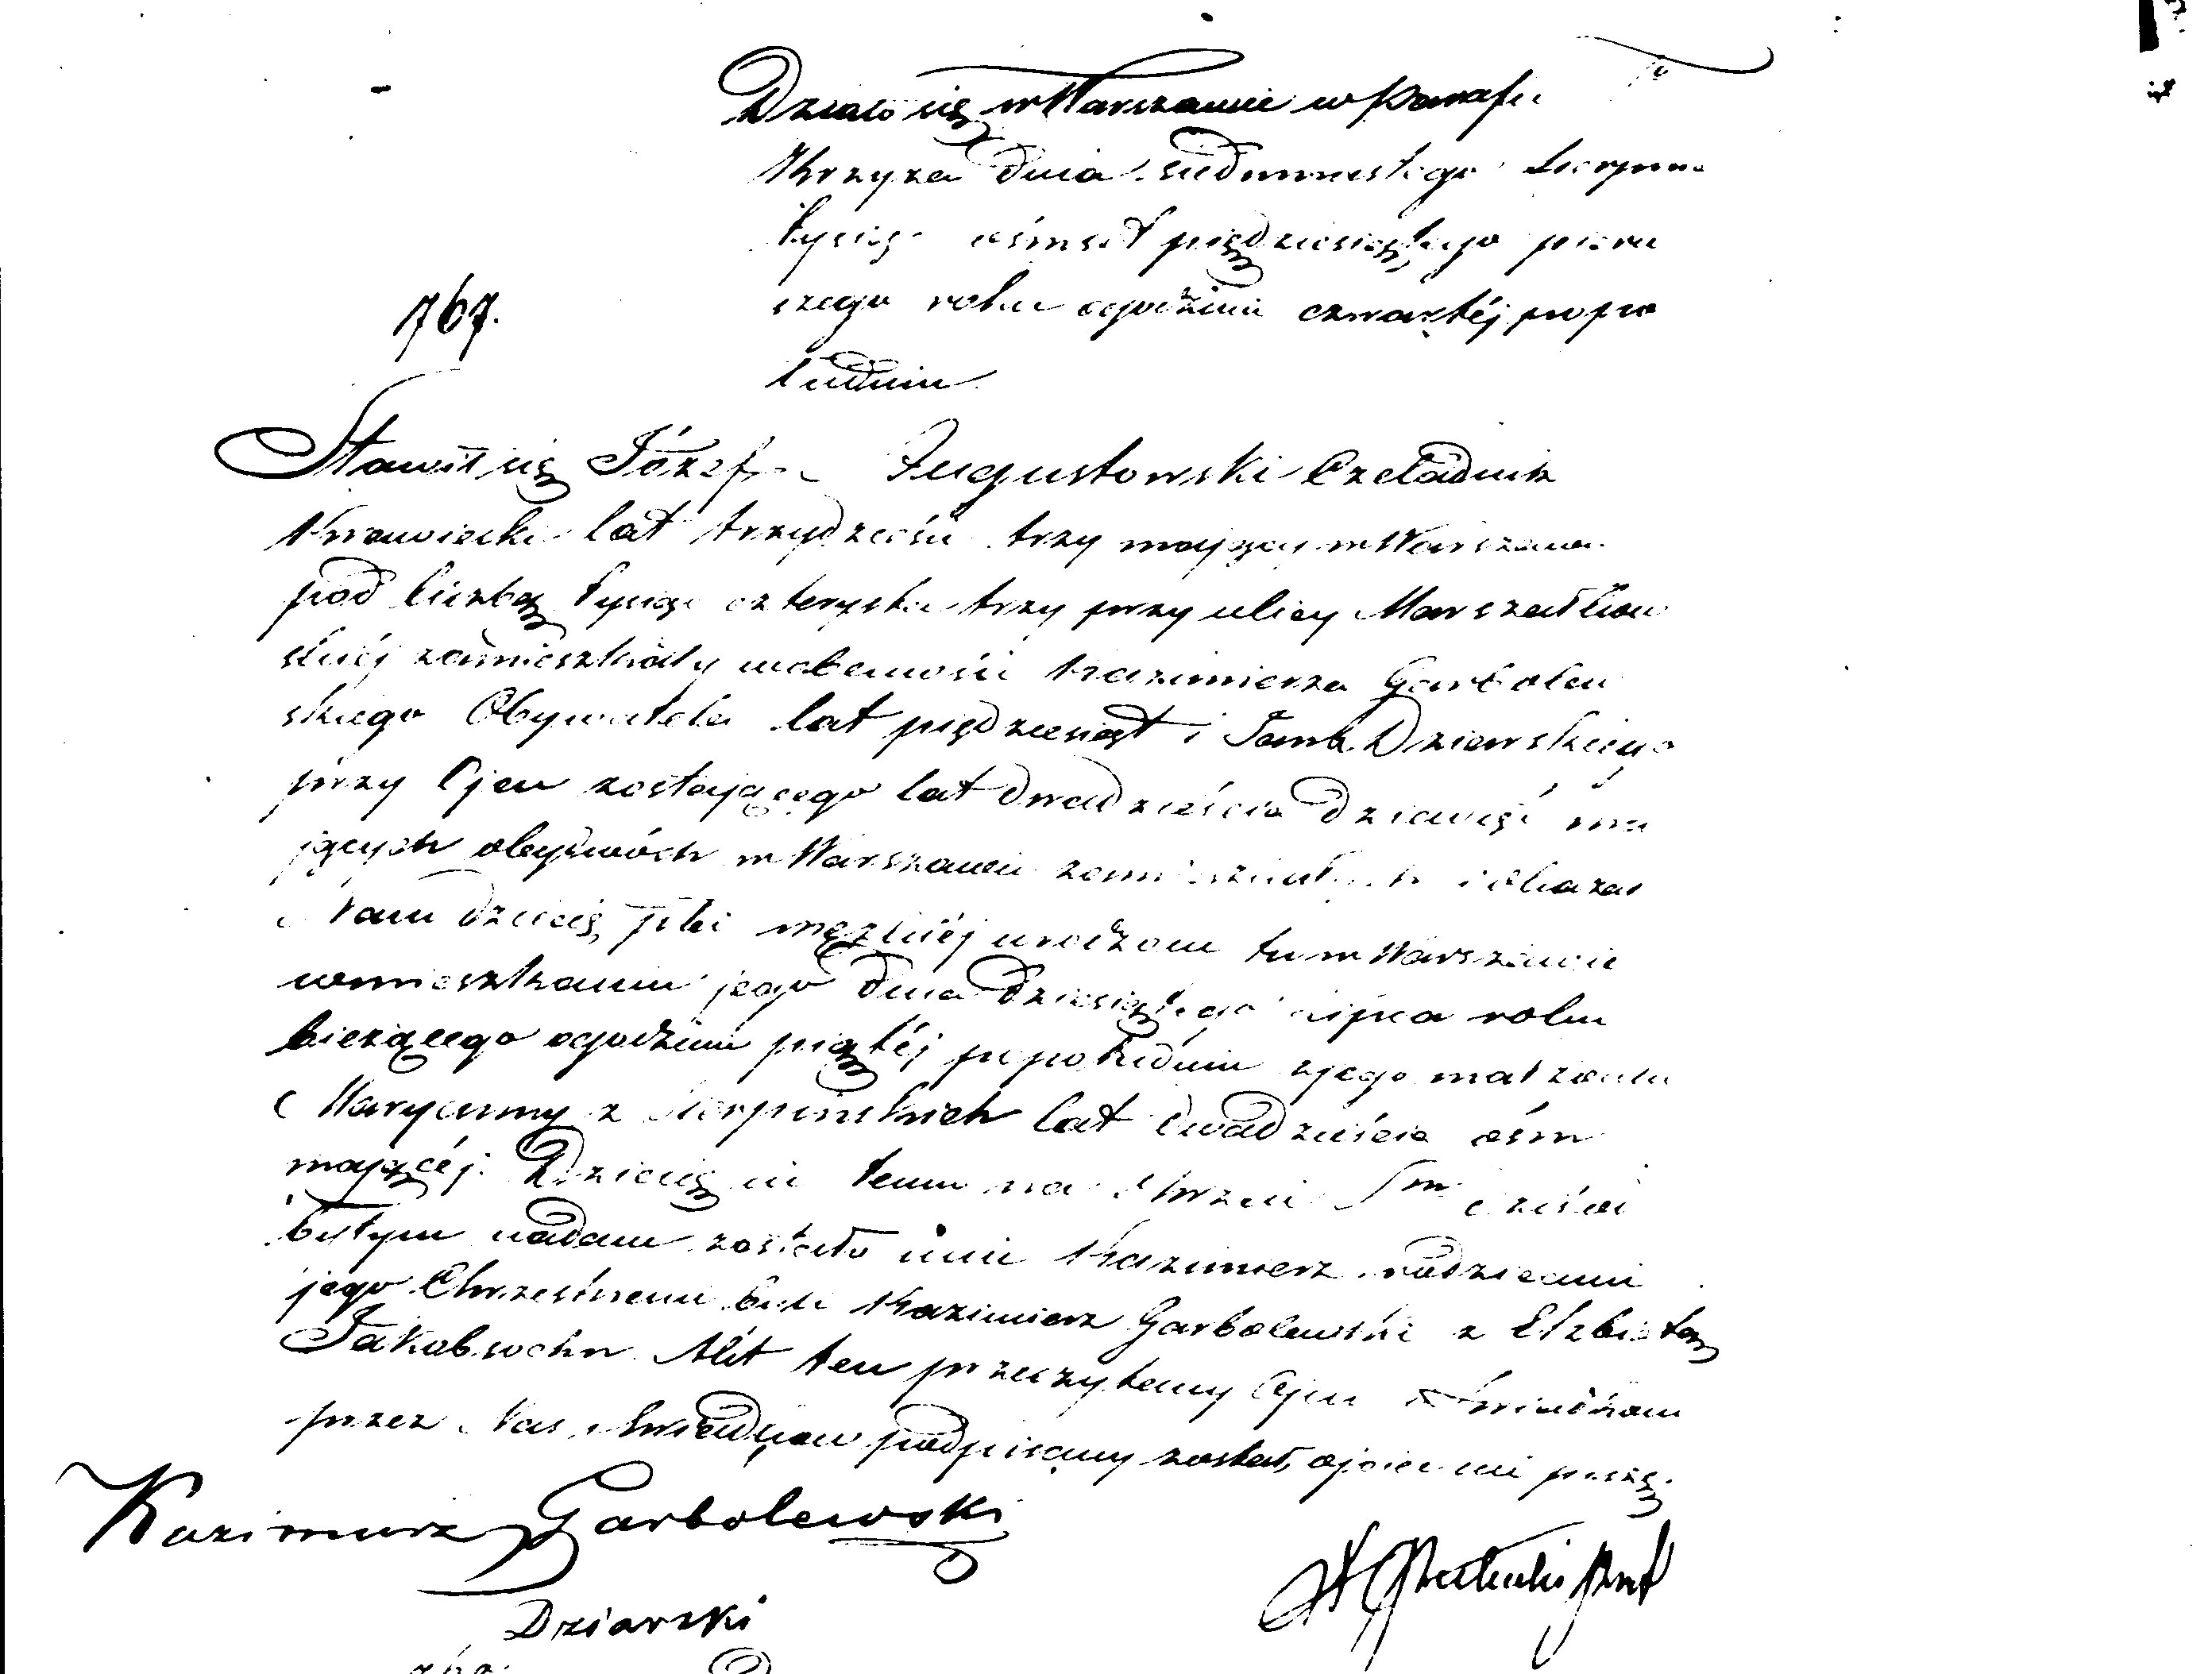 Działo się w Warszawie w Parafii
Krzyża dnia siedmnastego Sierpnia
tysiąc ośmset pięćdziesiątego pierw
szego roku o godzinie czwartéj po po
łudniu
767.
Stawił się Józef Augustowski Czeladnik
Krawiecki lat trzydzieści trzy mający w Warszawie
pod liczbą tysiąc czterysta trzy przy ulicy Marszałkow
skiéj zamieszkały w obecności Kazimierza Garbolew
skiego Obywatela lat pięćdziesiąt i Dziarskiego
przy Ojcu zostającego lat dwadzieścia dziewięć ma
jących obydwóch w Warszawie zamieszkałych i okazał
Nam dziecię płci męzkiéj urodzone tu w Warszawie
w mieszkaniu jego dnia dziesiątego Lipca roku
bieżącego o godzinie piątéj po południu z jego małżonki
Maryanny z Sierpińskich lat dwadzieścia ośm
mającéj. Dziecięciu temu na Chrzcie Sym dziś od
bytym nadane zostało imie Kazimierz rodzicami
jego Chrzestnemi byli Kazimierz Garbolewski z Elżbietą
Jakobsohn Akt ten przeczytany Ojcu i Świadkom
przez Nas i Świadków podpisany został, ojciec nie pisze.
Kazimierz Garbolewski
Dziarski